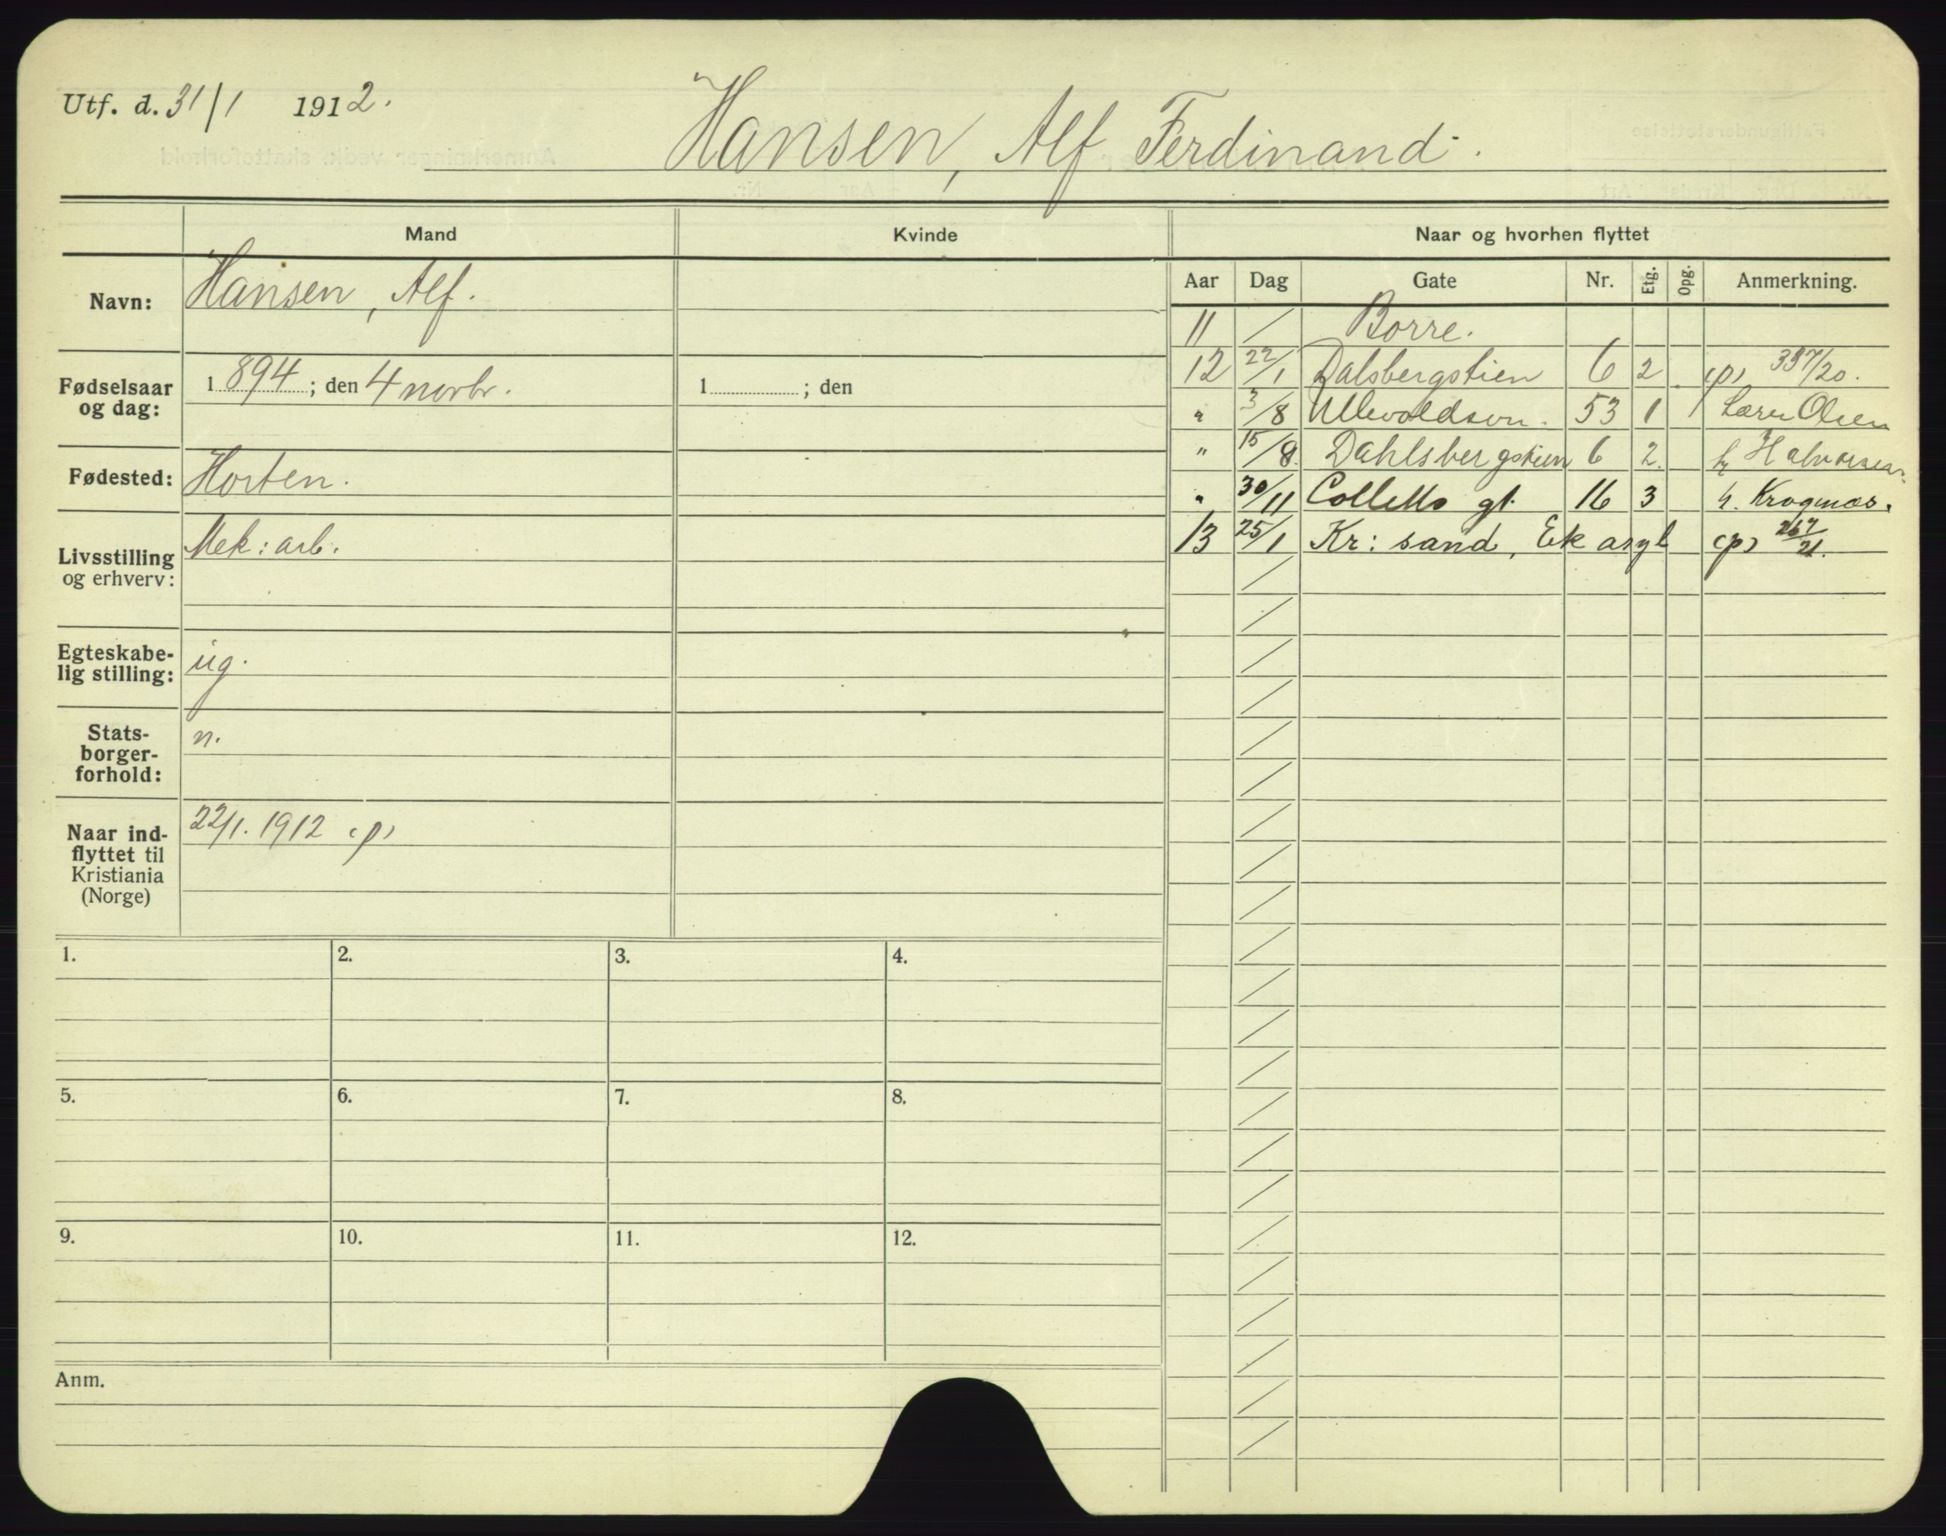 Utf. d. 31/1 1912.
Hansen, Alf Ferdinand.
Mand
Kvinde
Naar og hvorhen flyttet
Navn:
Hansen, Alf.
Fødselsaar og dag:
1894; den 4 novbr.
1 ; den
Fødested:
Horten.
Livsstilling og erhverv:
Mek: arb.
Egteskabe-
lig stilling:
ug.
Stats-
borger-
forhold:
n.
Naar ind-
flyttet til
Kristiania
(Norge)
22/1. 1912 (p)
Aar Dag Gate Nr. Etg. Opg. Anmerkning.
11 / Borre.
12 22/1 Dalsbergstien 6 2 (p) 337/20.
" 3/8 Ullevoldsvn. 53 1 Olsen
" 15/8 Dahlsbergstien 6 2. h Halvorsen.
" 30/11 Colletts gt. 16 3 h. Krogmos.
13 25/1 Kr: sand, Ek asyl (p) 267/21.
1. 2. 3. 4.
5. 6. 7. 8.
9. 10. 11. 12.
Anm.